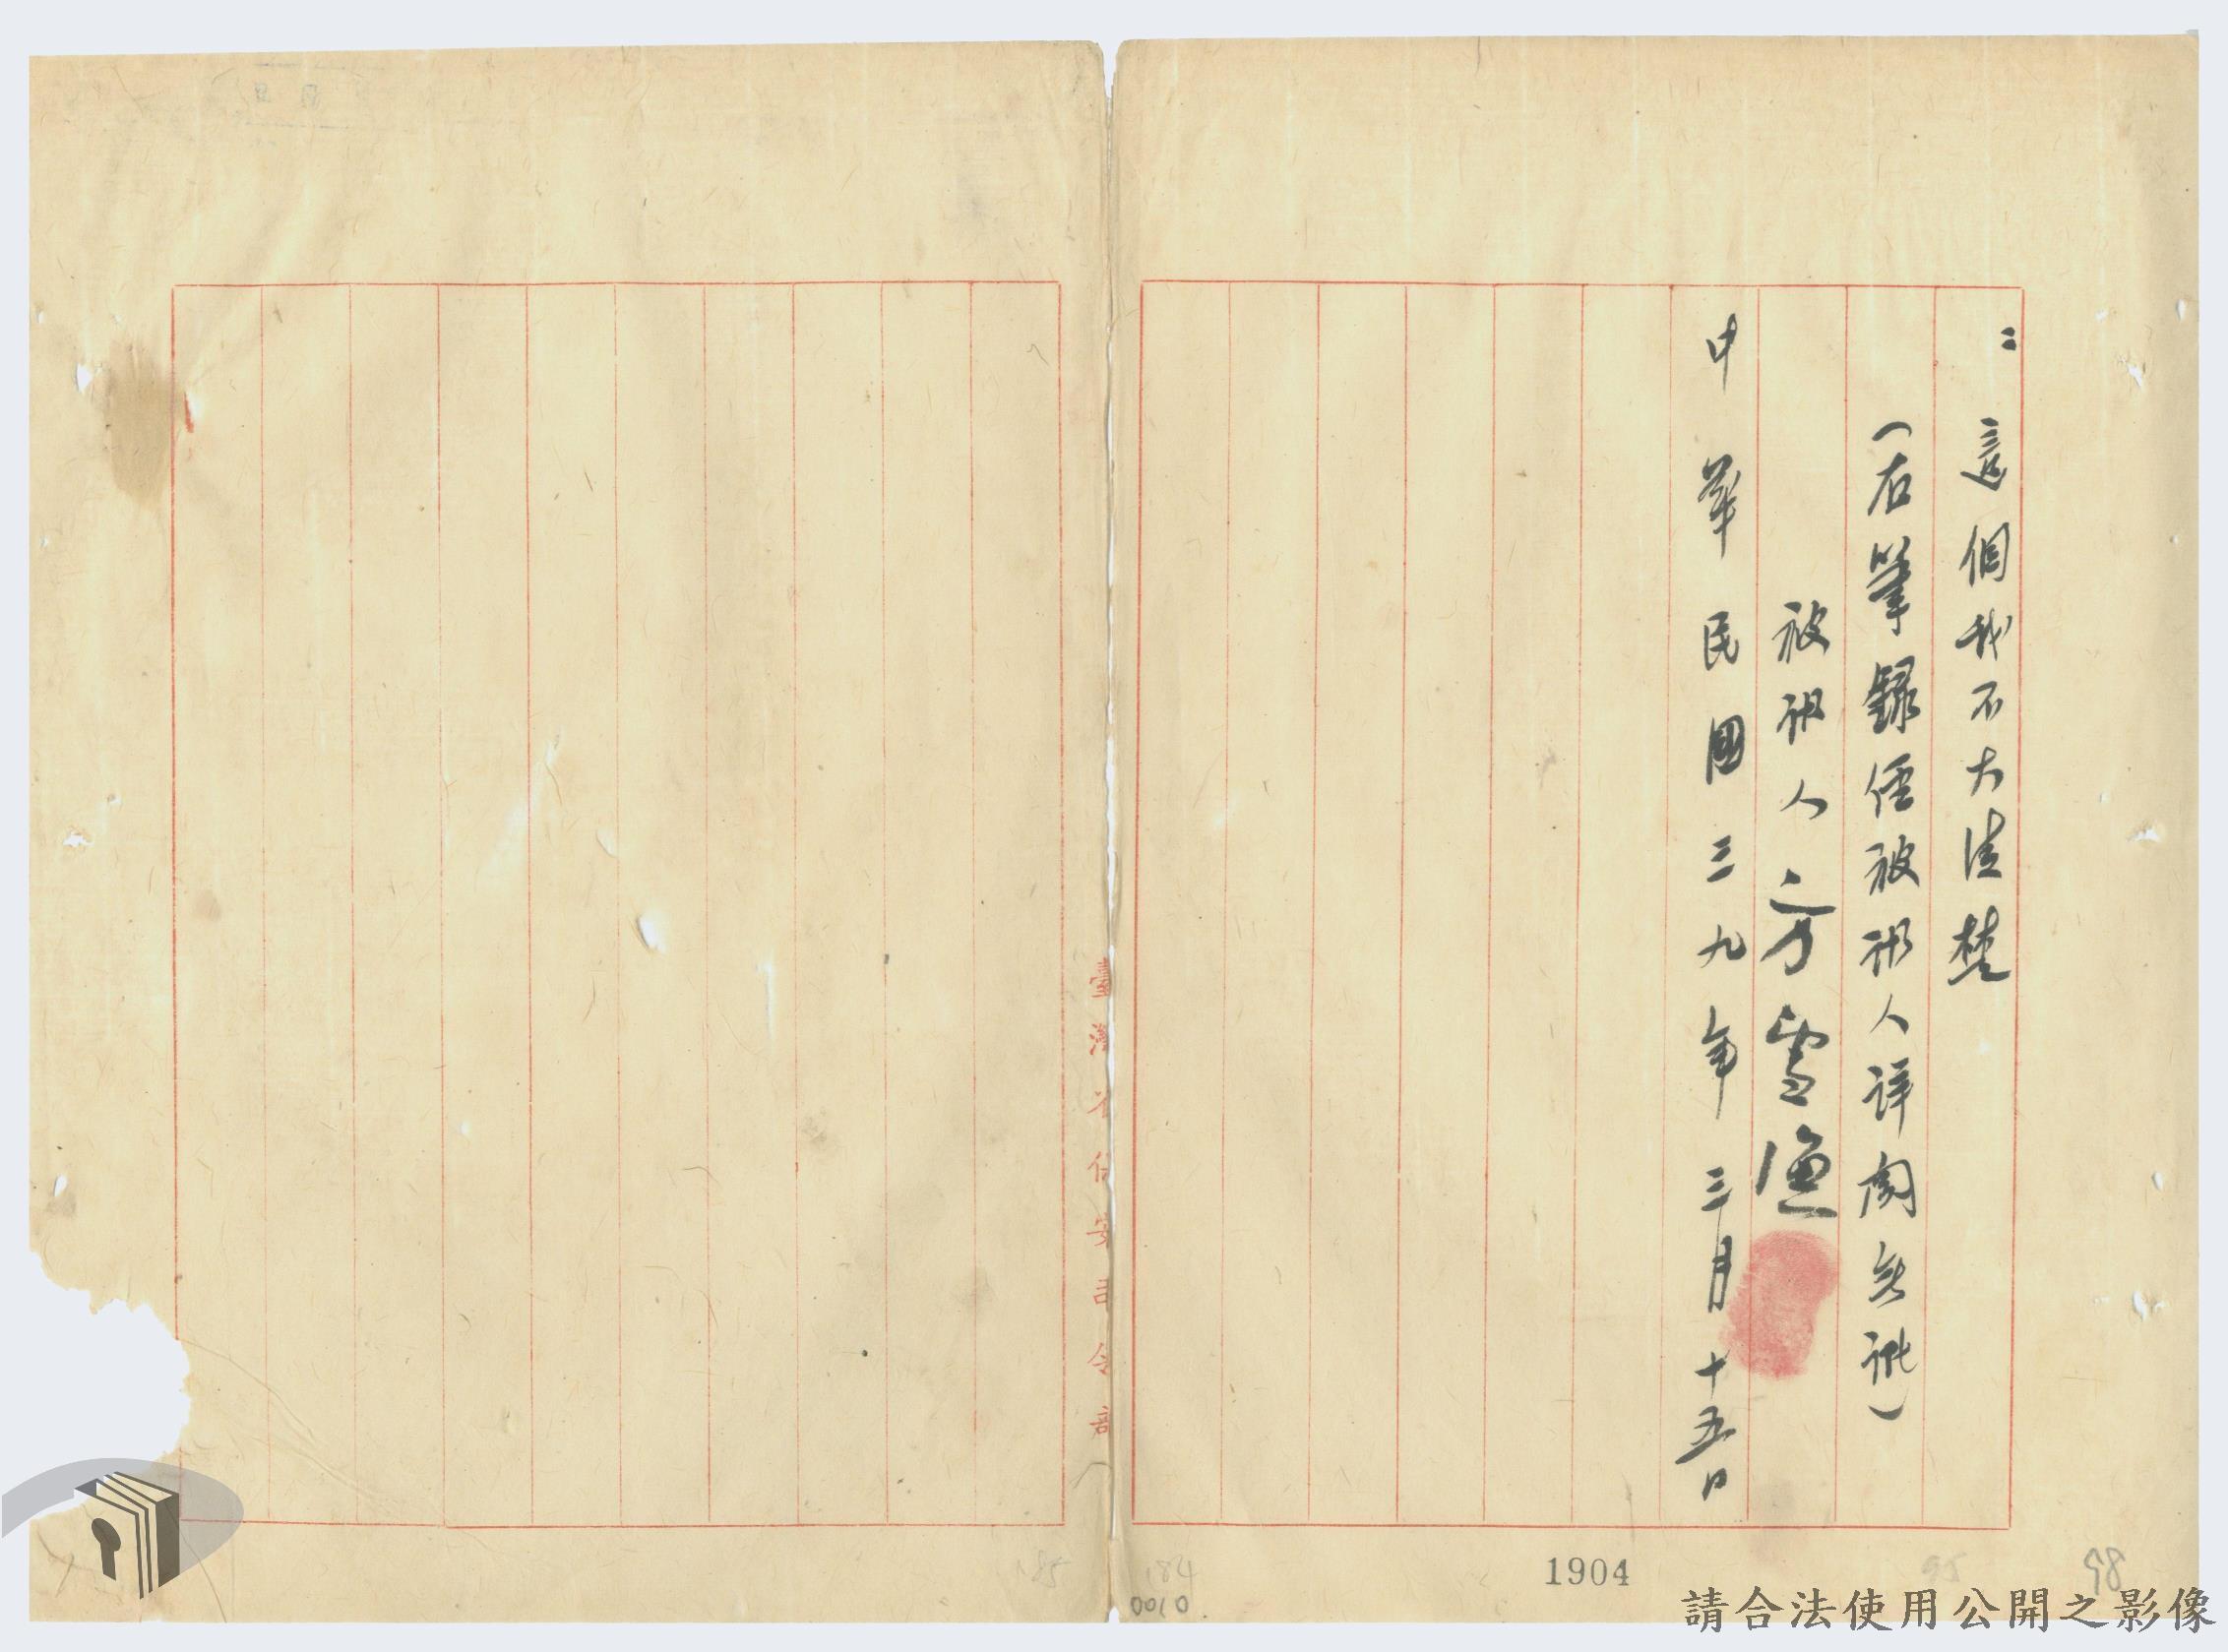 ：這個我不大清楚
（右筆錄經被訊人詳閱無訛）
被訊人 方雪漁
中華民國三九年三月十五日
臺灣省保安司令部
184
0010
1904
95
98
請合法使用公開之影像